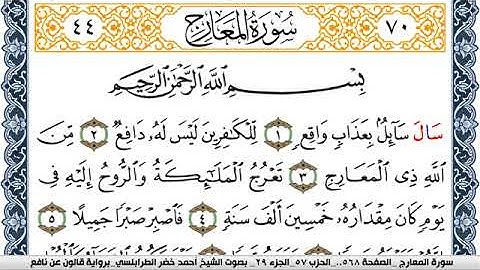 ٧٠ سُورَةُ المَعَارِجِ ٤٤
بِسْمِ اللَّهِ الرَّحْمَٰنِ الرَّحِيمِ
سَالَ سَآئِلُۢ بِعَذَابٖ وَاقِعٖ ١ لِّلْكَٰفِرِينَ لَيْسَ لَهُۥ دَافِعٞ ٢ مِّنَ
اَللَّهِ ذِى اِلْمَعَارِجِ ٣ تَعْرُجُ الْمَلَٰٓئِكَةُ وَالرُّوحُ إِلَيْهِ فِى
يَوْمٖ كَانَ مِقْدَارُهُۥ خَمْسِينَ أَلْفَ سَنَةٖ ٤ فَاصْبِرْ صَبْراٗ جَمِيلاً ٥
سورة المعارج_ الصفحة ٥٦٨_ الحزب ٥٧_ الجزء ٢٩_ بصوت الشيخ احمد خضر الطرابلسي_ برواية قالون عن نافع